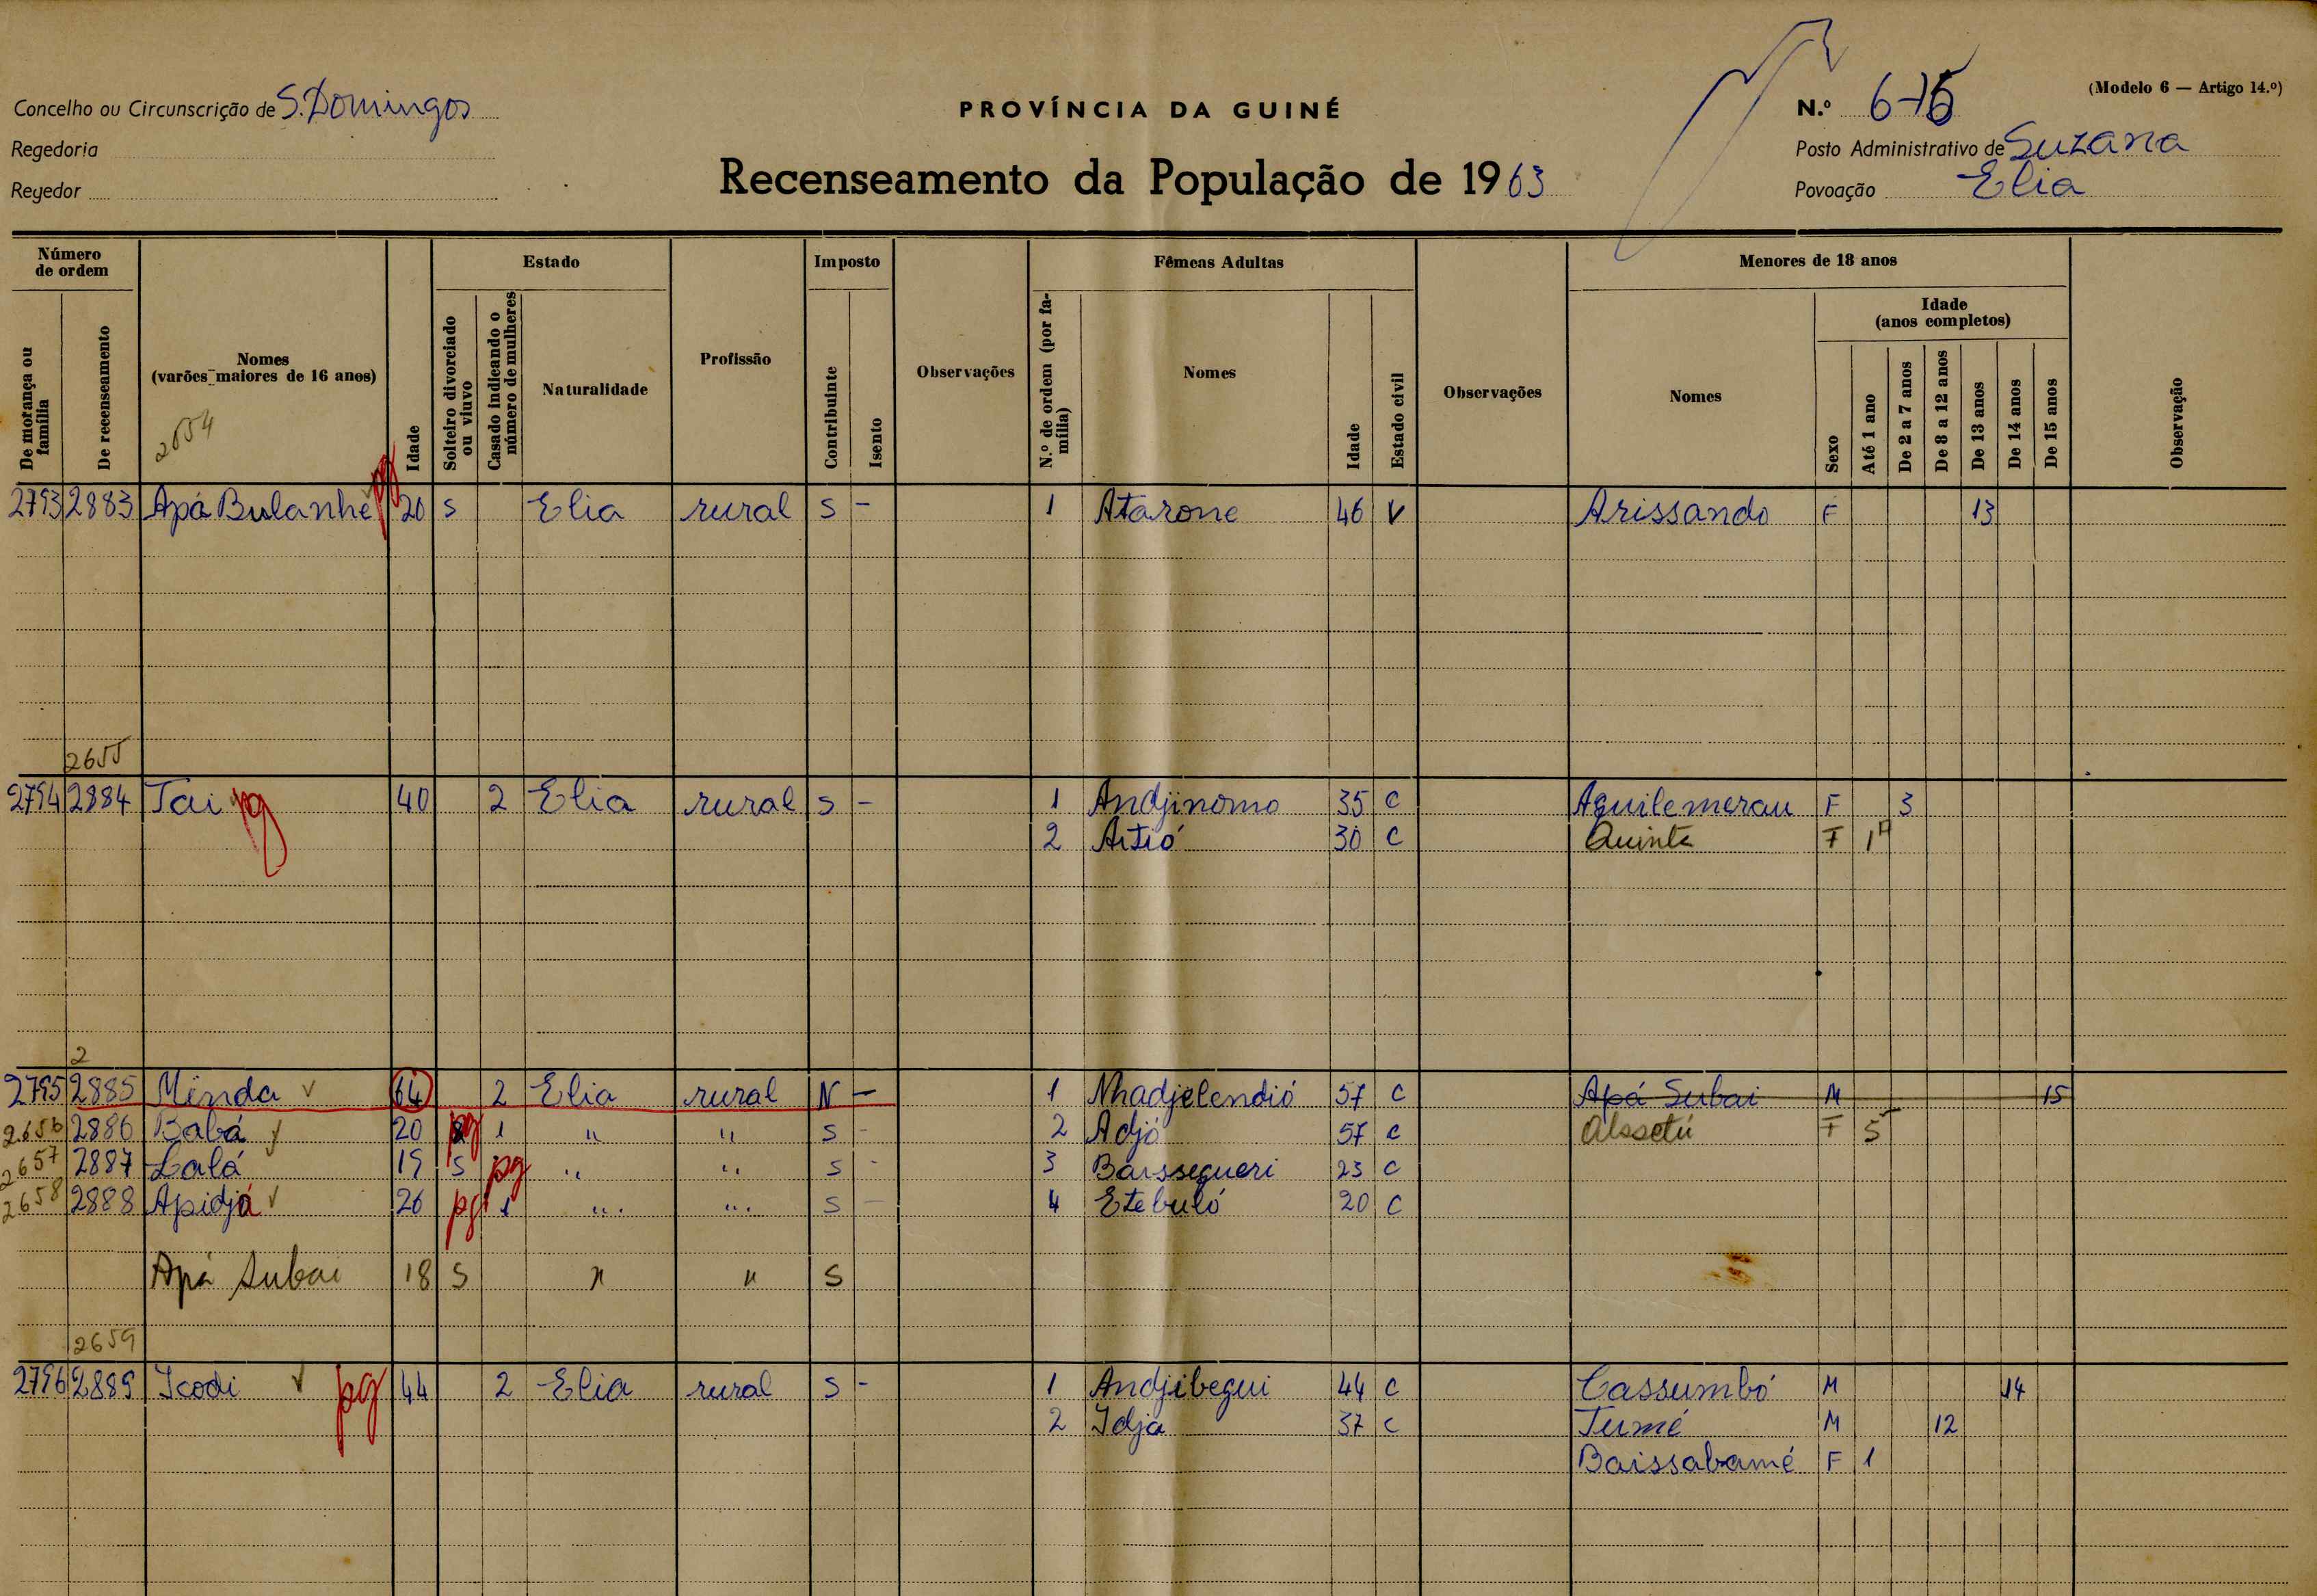 (Modelo 6 — Artigo 14.º)
Concelho ou Circunscrição de S. Domingos
PROVÍNCIA DA GUINÉ
N.º
Regedoria
Posto Administrativo de Suzana
Regedor
Recenseamento da População de 1963
Povoação Elia
Número de ordem
De morança ou família
De recenseamento
Nomes
(varões maiores de 16 anos)
2654
Idade
Estado
Solteiro divorciado ou viuvo
Casado indicando o número de mulheres
Naturalidade
Profissão
Imposto
Contribuinte
Isento
Observações
Fêmeas Adultas
N.º de ordem (por família)
Nomes
Idade
Estado civil
Observações
Menores de 18 anos
Nomes
Sexo
Idade
(anos completos)
Até 1 ano
De 2 a 7 anos
De 8 a 12 anos
De 13 anos
De 14 anos
De 15 anos
Observação
2793 2883 Apá Bulanhe pg 20 S Elia rural S - 1 Atarone 46 V Arissando F 13
2655
2794 2884 Tai pg 40 2 Elia rural S - 1 Andjinomo 35 C Aguilemerau F 3
2 Artió 30 C Quinta F 1
2
2795 2885 Minda v 64 2 Elia rural N - 1 Nhadjelendió 57 C Apá Subai M 15
2656 2886 Babá v 20 pg 1 " " S - 2 Adjó 57 C Alssetú F 5
2657 2887 Lalá 19 S pg " " S - 3 Baissegueri 23 C
2658 2888 Apidjá v 26 pg 1 " " S - 4 Etebuló 20 C
Apá Subai 18 S " " S
2659
2796 2889 Icodi v pg 44 2 Elia rural S - 1 Andjibegui 44 C Cassumbó M 14
2 Idja 37 C Tumé M 12
Baissabamé F 1